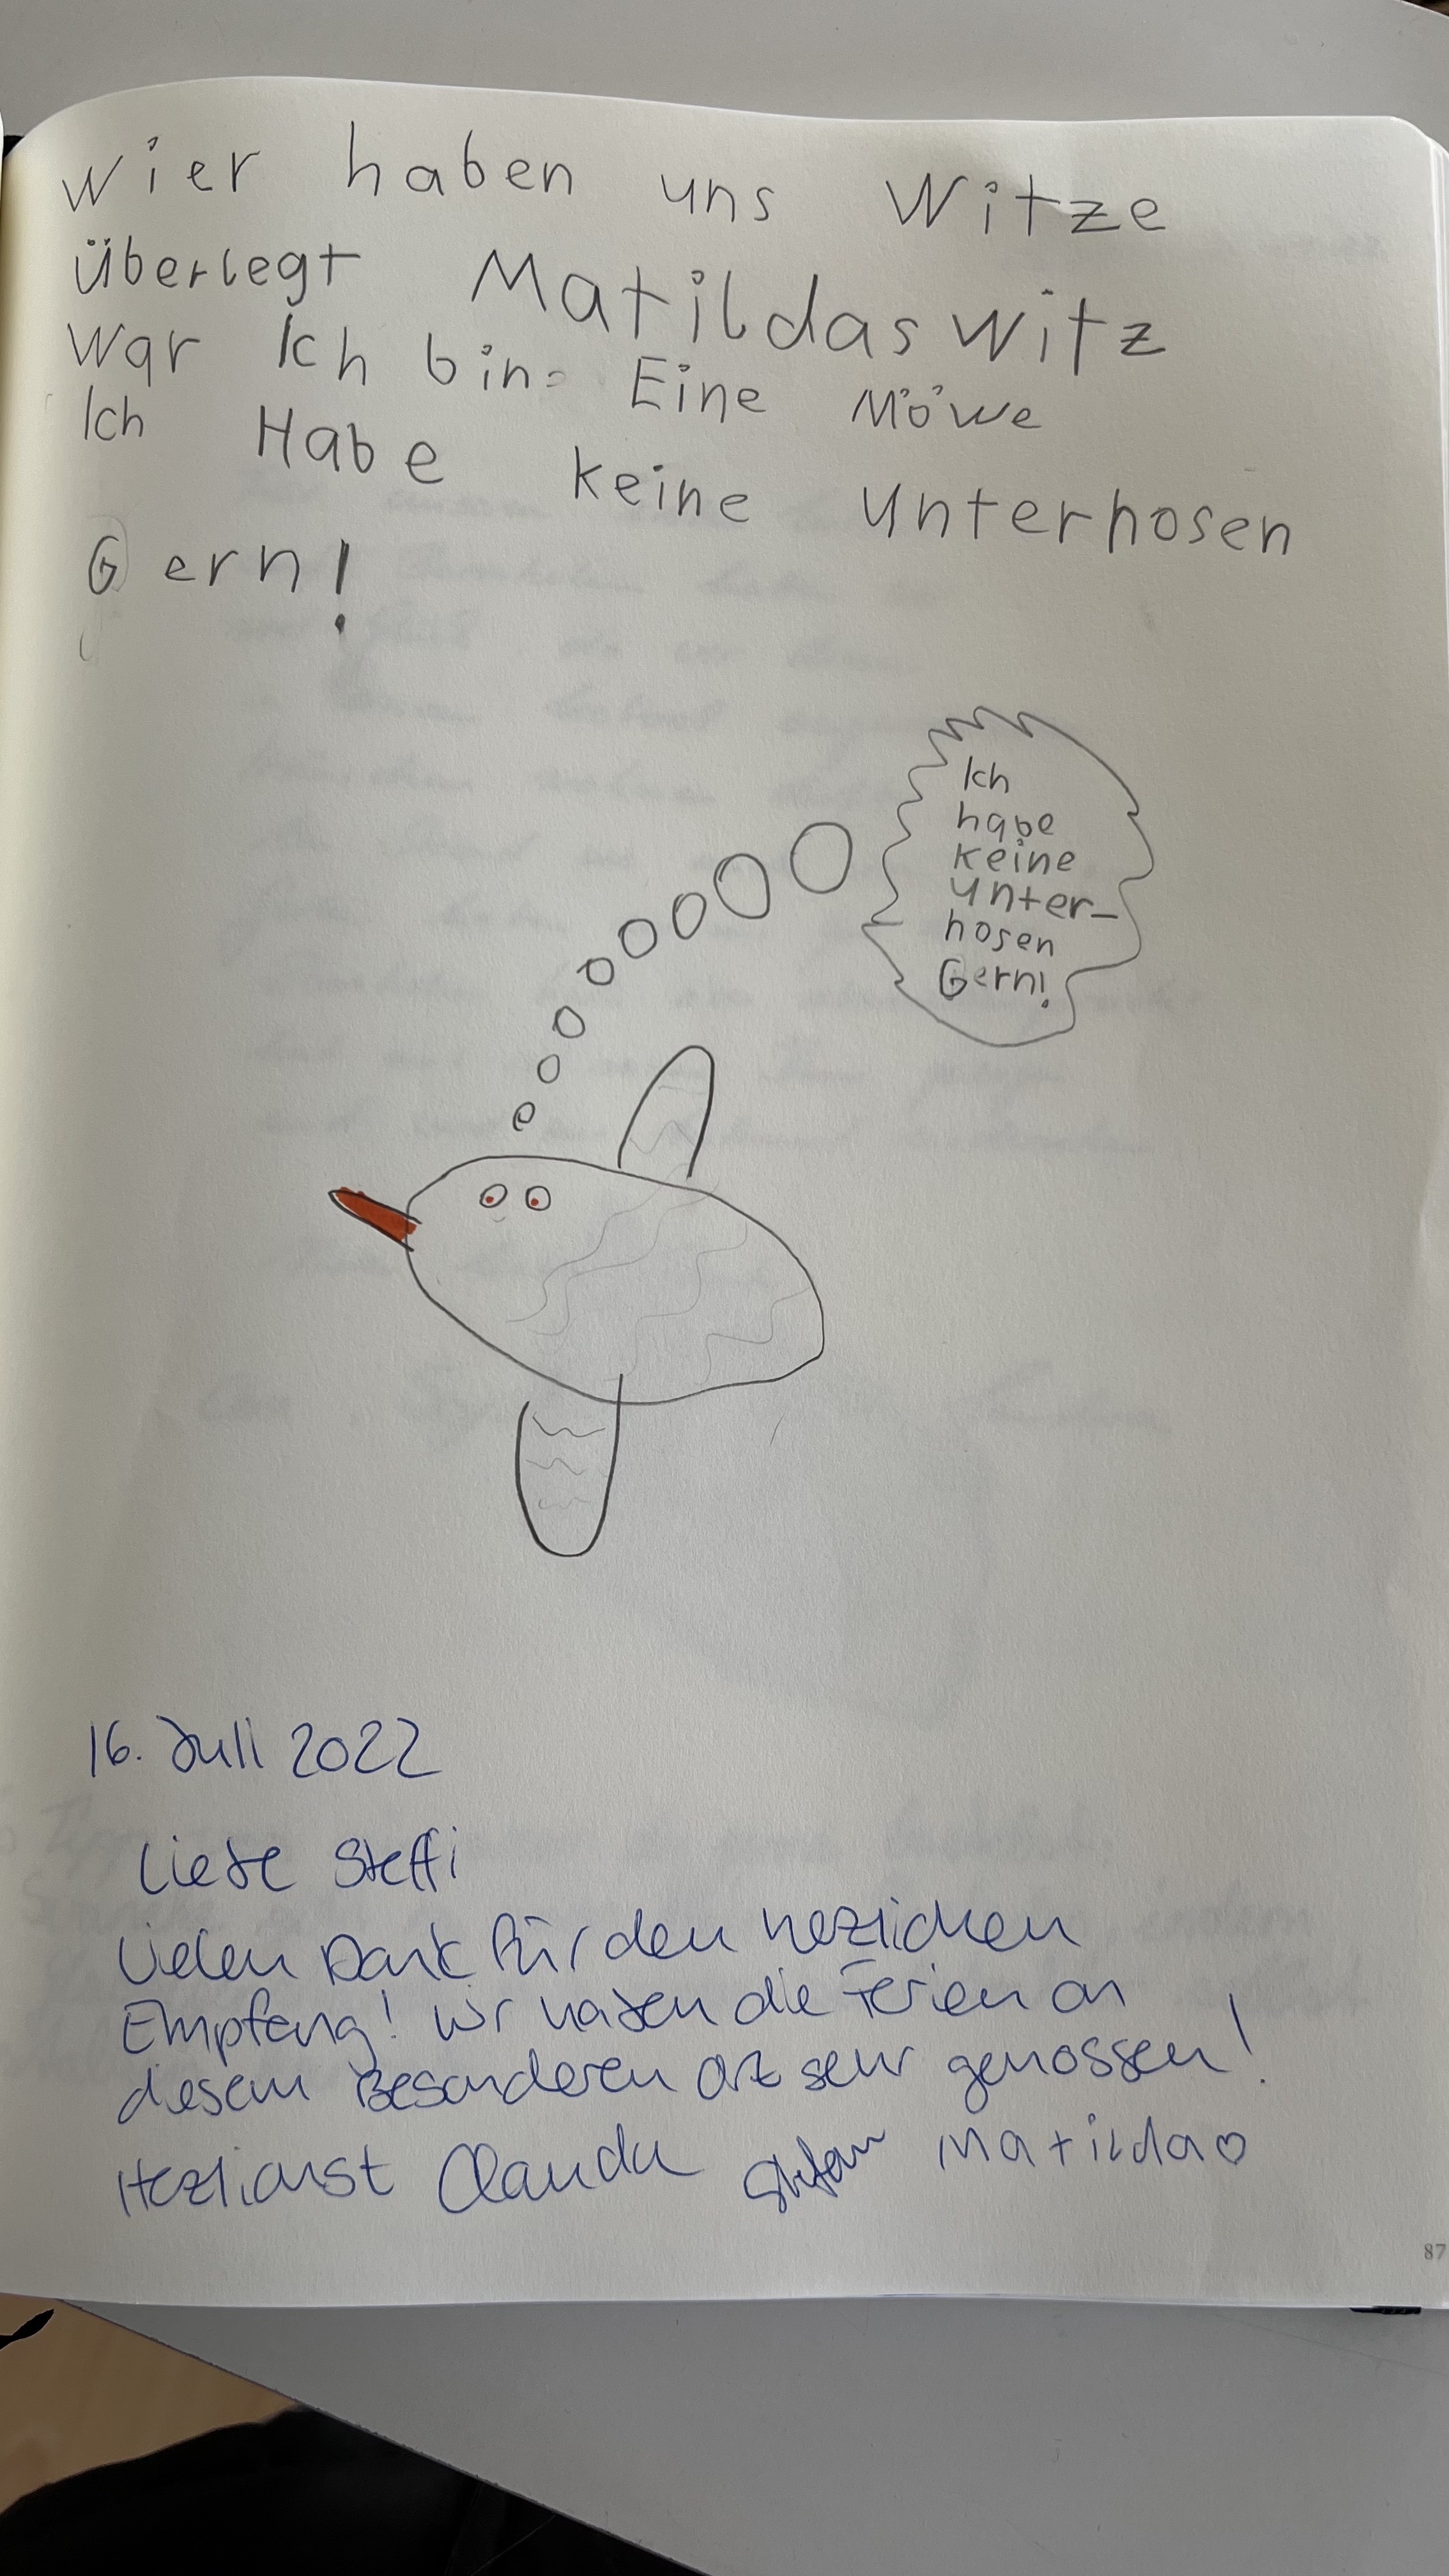 Wier haben uns Witze
überlegt Matildas witz
War Ich bin Eine Möwe
Ich Habe keine unterhosen
Gern!
Ich
habe
keine
unter-
hosen
Gern!
16. Juli 2022
Liebe Steffi
Vielen Dank für den herzlichen
Empfang! Wir haben die Ferien an
diesem Besonderen Ort sehr genossen!
Herzlichst Claudia Stefan Matilda
87